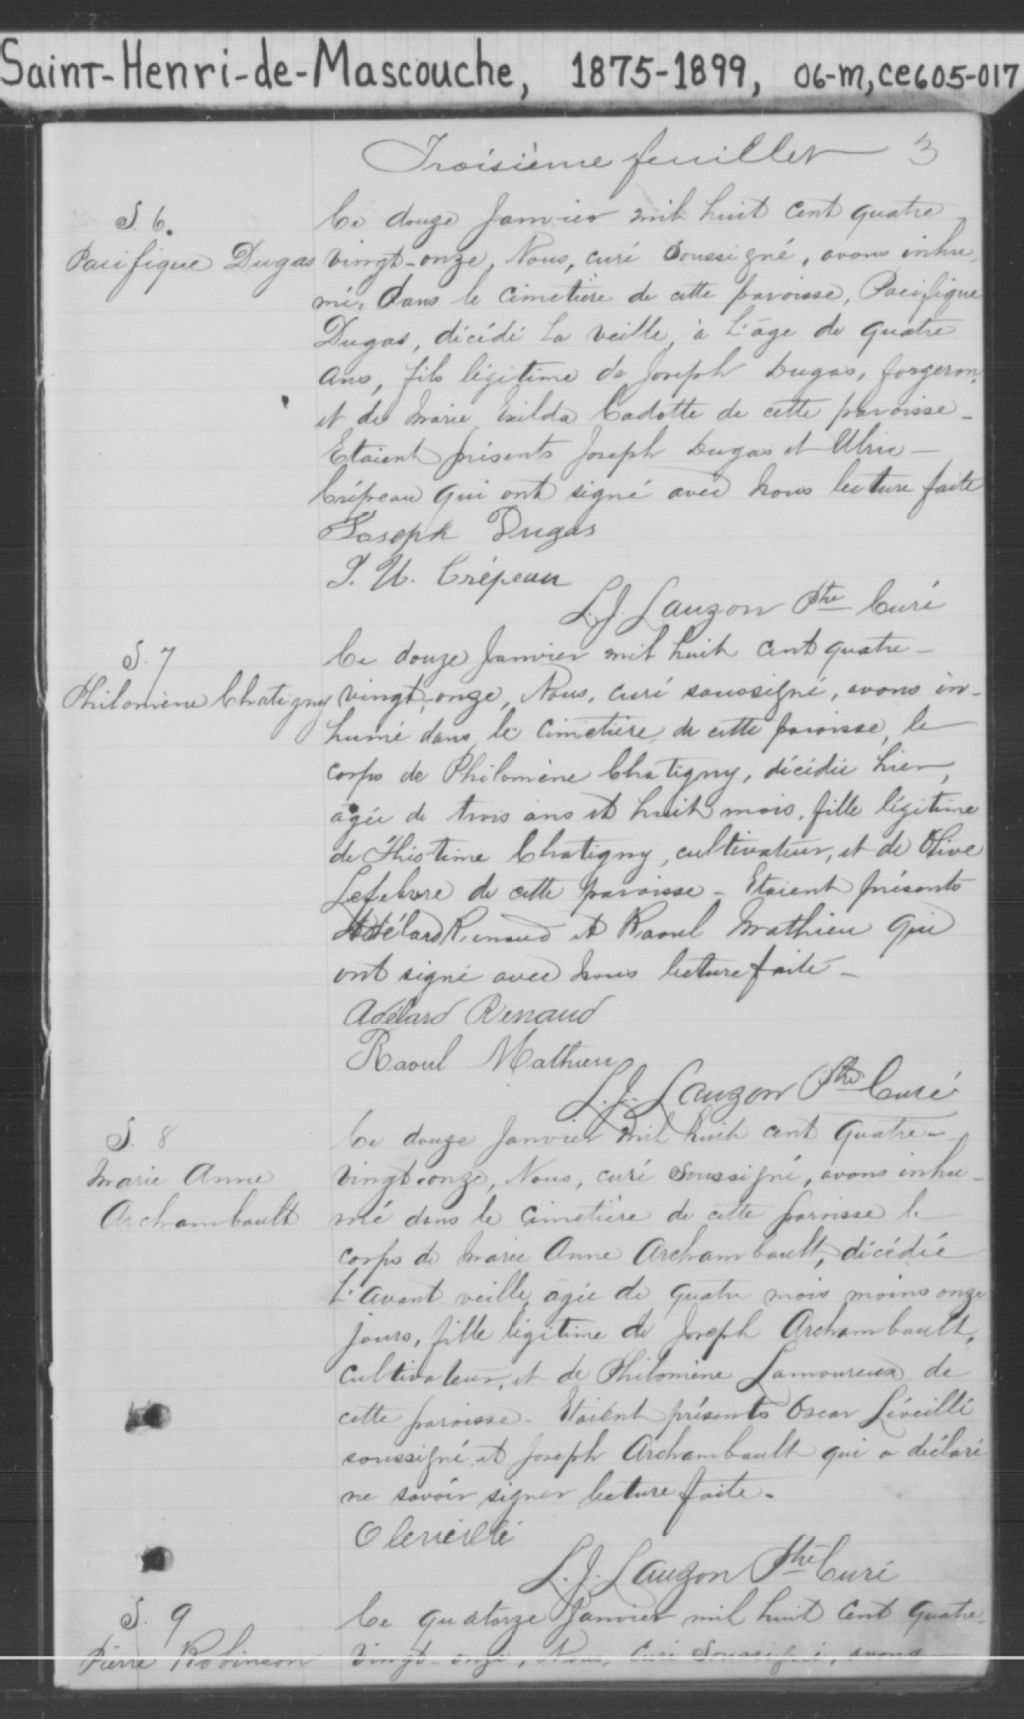 Saint-Henri-de-Mascouche, 1875-1899, 06-M, CE605-017
Troisième feuillet 3
S. 6.
Pacifique Dugas
Ce douze Janvier mil huit cent quatre
vingt-onze, Nous, curé soussigné, avons inhu-
mé, dans le cimetière de cette paroisse, Pacifique
Dugas, décédé la veille, à l'âge de quatre
ans, fils légitime de Joseph Dugas, forgeron,
et de Marie Exilda Cadotte de cette paroisse -
Etaient présents Joseph Dugas et Ulric -
Crépeau qui ont signé avec nous lecture faite
Joseph Dugas
J. U. Crépeau
L. J. Lauzon Ptre Curé
S. 7
Philomène Chatigny
Ce douze Janvier mil huit cent quatre-
vingt-onze, Nous, curé soussigné, avons in-
humé dans le cimetière de cette paroisse, le
corps de Philomène Chatigny, décédée hier,
âgée de trois ans et huit mois, fille légitime
de Thistime Chatigny, cultivateur, et de Olive
Lefebvre de cette paroisse - Etaient présents
Adélard Renaud et Raoul Mathieu qui
ont signé avec nous lecture faite -
Adélard Renaud
Raoul Mathieu
L. J. Lauzon Ptre Curé
S. 8
Marie Anne
Archambault
Ce douze Janvier mil huit cent quatre-
vingt-onze, Nous, curé soussigné, avons inhu-
mé dans le cimetière de cette paroisse le
corps de Marie Anne Archambault, décédée
l'avant veille, âgée de quatre mois moins onze
jours, fille légitime de Joseph Archambault,
cultivateur, et de Philomène Lamoureux de
cette paroisse - Etaient présents Oscar Léveillé
soussigné et Joseph Archambault qui a déclaré
ne savoir signer lecture faite.
O Leveillé
L. J. Lauzon Ptre Curé
S. 9
Pierre Robinson
Ce quatorze Janvier mil huit cent quatre-
vingt-onze, Nous, curé soussigné, avons